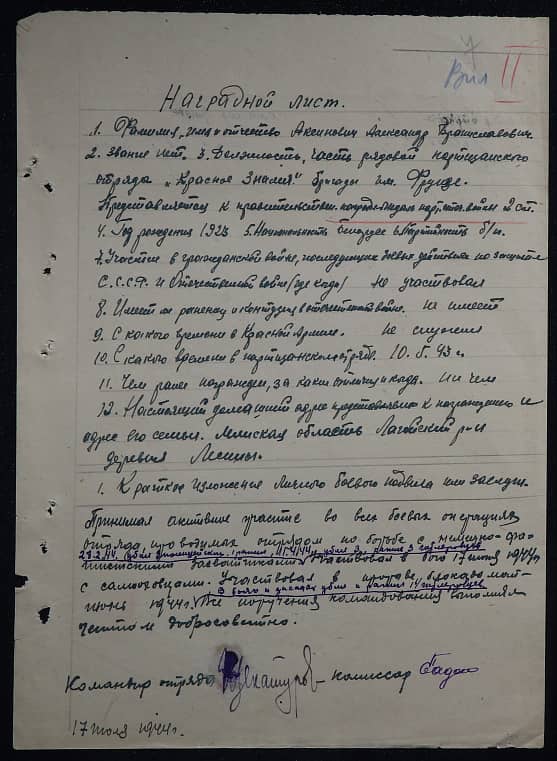 Вил II
Наградной лист.
1. Фамилия, имя и отчество Аксинович Александр Браниславович
2. Звание нет. 3. Должность, часть рядовой партизанского
отряда „Красное Знамя" бригады им. Фрунзе.
Представляется к правительствен. награде медаль парт. отеч. войны 2 ст.
4. Год рождения 1923 5. Национальность белорус 6. Партийность б/п.
7. Участие в гражданской войне, последующих боевых действиях по защите
С.С.С.Р. и Отечественной войне (где когда) Не участвовал
8. Имеет ли ранения и контузии в отечественной войне. не имеет
9. С какого времени в Красной Армии. не служил
10. С какого времени в партизанском отряде. 10. 5. 43 г.
11. Чем ранее награжден, за какие отличия и когда. Ни чем
12. Настоящий домашний адрес представляемого к награждению и
адрес его семьи. Минская область Логойский р-н
деревня
1. Краткое изложение личного боевого подвига или заслуги.
Принимал активное участие во всех боевых операциях
отряда, проводимых отрядом по борьбе с немецко-фа-
28.2.44 убил
шистскими захватчиками. Участвовал в бою 17 июня 1944 г.
с самоховцами. Участвовал в прорыве блокады май-
В боях и засадах убил и ранил 14 гитлеровцев
июнь 1944 г. Все поручения командования выполнял
честно и добросовестно.
Командир отряда комиссар
17 июля 1944 г.